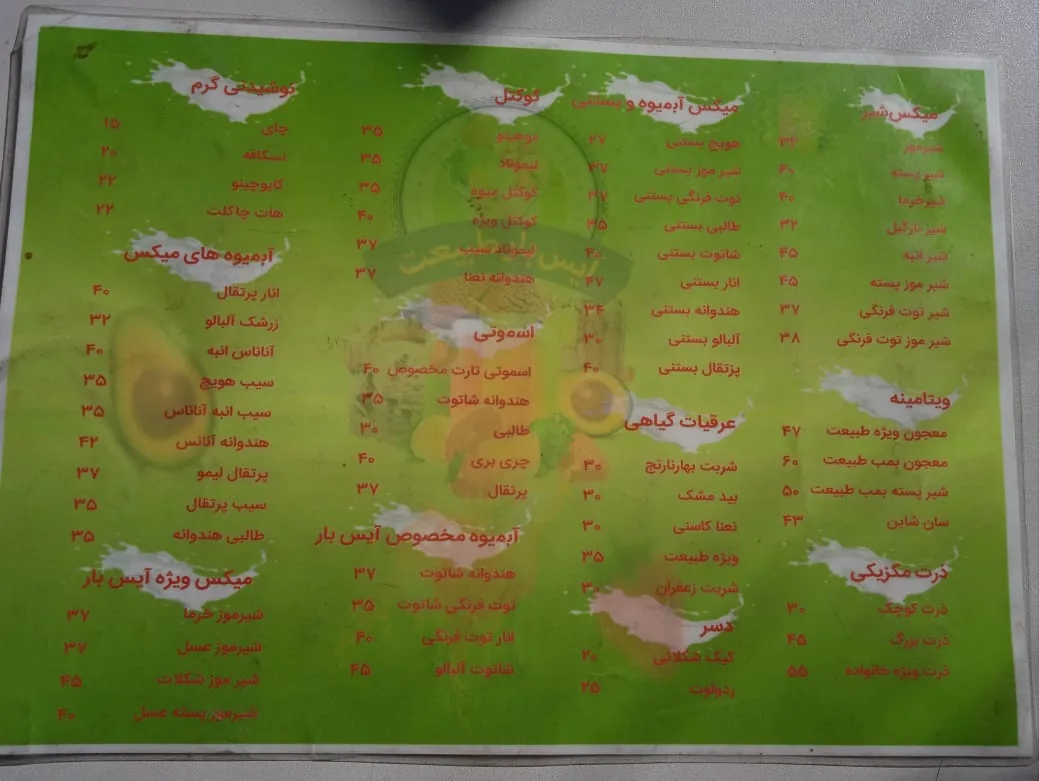 میکس شیر
شیرموز ۳۲
شیر پسته ۴۰
شیرخرما ۴۰
شیر نارگیل ۳۲
شیر انبه ۴۵
شیر موز پسته ۴۵
شیر توت فرنگی ۳۷
شیر موز توت فرنگی ۳۸
ویتامینه
معجون ویژه طبیعت ۴۷
معجون بمب طبیعت ۶۰
شیر پسته بمب طبیعت ۵۰
سان شاین ۴۳
ذرت مکزیکی
ذرت کوچک ۳۰
ذرت بزرگ ۴۵
ذرت ویژه خانواده ۵۵
میکس آبمیوه و بستنی
هویج بستنی ۲۷
شیر موز بستنی ۳۷
توت فرنگی بستنی ۳۷
طالبی بستنی ۳۵
شاتوت بستنی ۴۰
انار بستنی ۴۷
هندوانه بستنی ۳۴
آلبالو بستنی ۳۰
پرتقال بستنی ۴۰
عرقیات گیاهی
شربت بهارنارنج ۳۰
بید مشک ۳۰
نعنا کاسنی ۳۰
ویژه طبیعت ۳۵
شربت زعفران ۳۰
دسر
کیک شکلاتی ۲۰
ردولوت ۲۵
کوکتل
موهیتو ۳۵
لیموناد ۳۵
کوکتل میوه ۳۵
کوکتل ویژه ۴۰
لیموناد سیب ۳۷
هندوانه نعنا ۳۷
آیس بار طبیعت
اسموتی
اسموتی تارت مخصوص ۴۰
هندوانه شاتوت ۳۵
طالبی ۳۰
چری بری ۴۰
پرتقال ۳۷
آبمیوه مخصوص آیس بار
هندوانه شاتوت ۳۷
توت فرنگی شاتوت ۳۵
انار توت فرنگی ۴۰
شاتوت آلبالو ۴۵
نوشیدنی گرم
چای ۱۵
نسکافه ۲۰
کاپوچینو ۲۲
هات چاکلت ۲۲
آبمیوه های میکس
انار پرتقال ۴۰
زرشک آلبالو ۳۲
آناناس انبه ۴۰
سیب هویج ۳۵
سیب انبه آناناس ۳۵
هندوانه آنانس ۴۲
پرتقال لیمو ۳۷
سیب پرتقال ۳۵
طالبی هندوانه ۳۵
میکس ویژه آیس بار
شیرموز خرما ۳۷
شیرموز عسل ۳۷
شیر موز شکلات ۴۵
شیرموز پسته عسل ۴۰